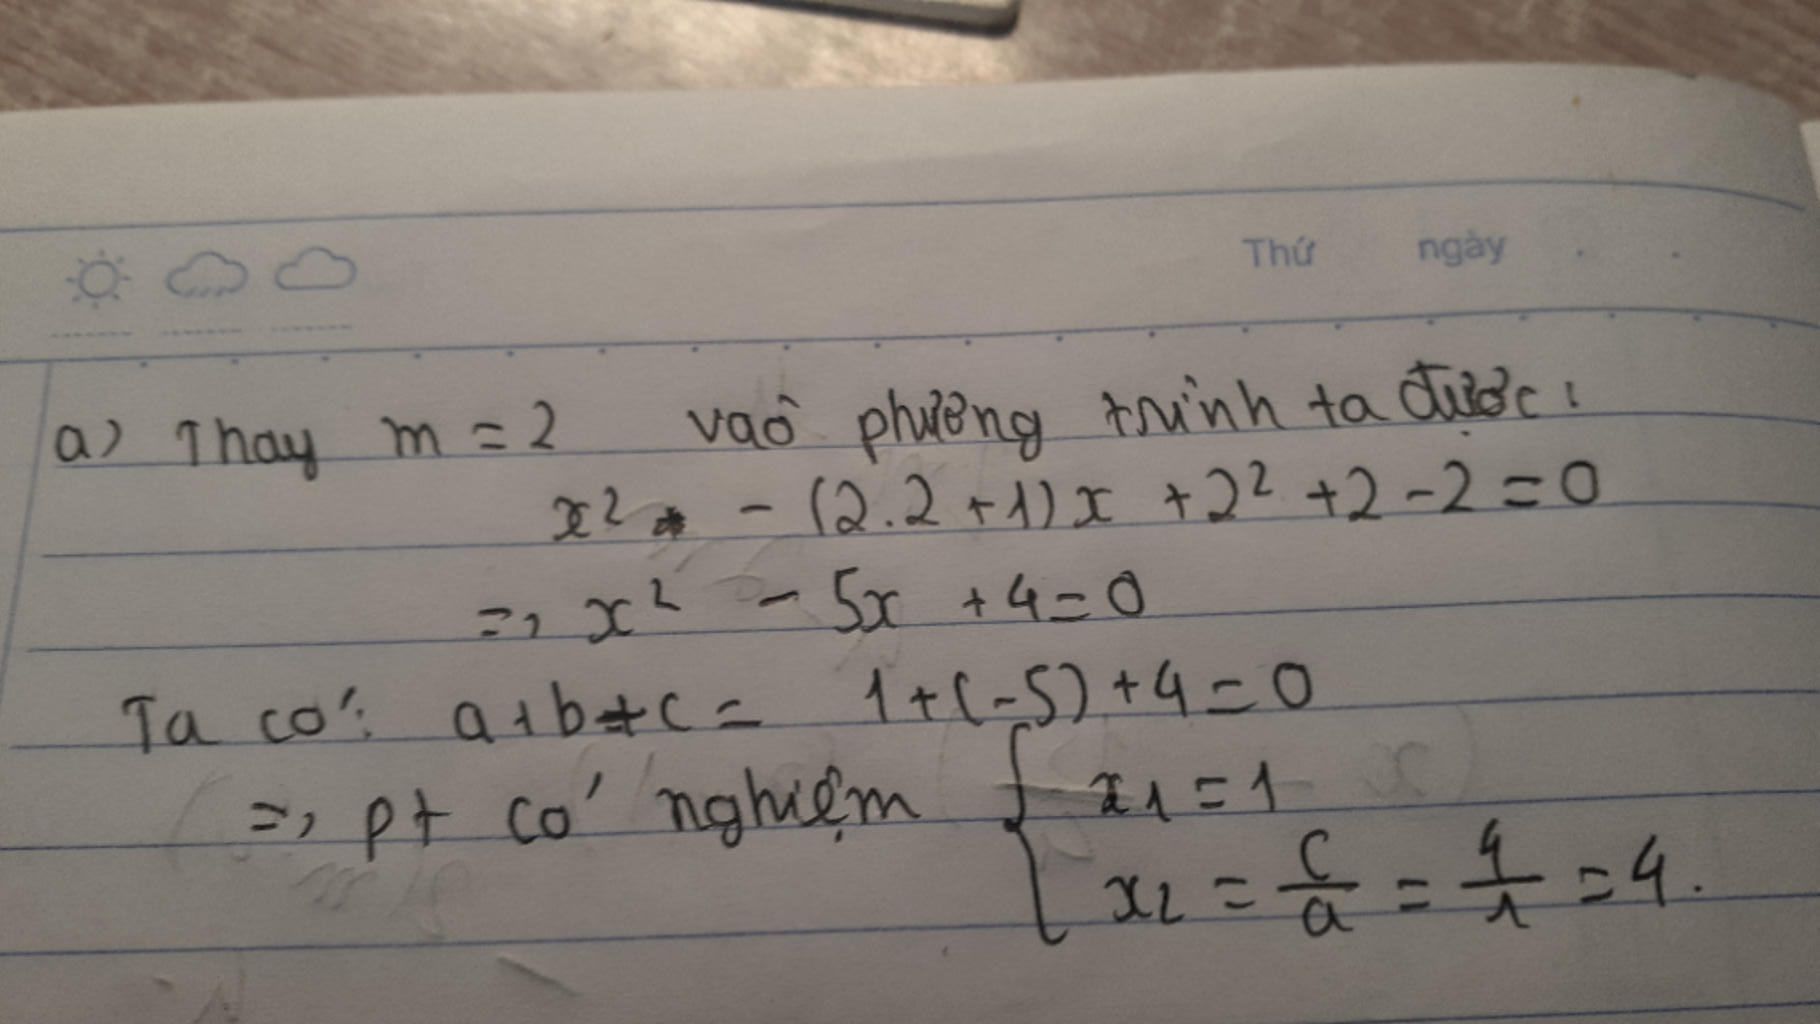 Thứ ngày . .
a) Thay m = 2 vào phương trình ta được:
x² - (2.2 + 1)x + 2² + 2 - 2 = 0
=> x² - 5x + 4 = 0
Ta có: a + b + c = 1 + (-5) + 4 = 0
=> pt có nghiệm { x₁ = 1
x₂ = c/a = 4/1 = 4.